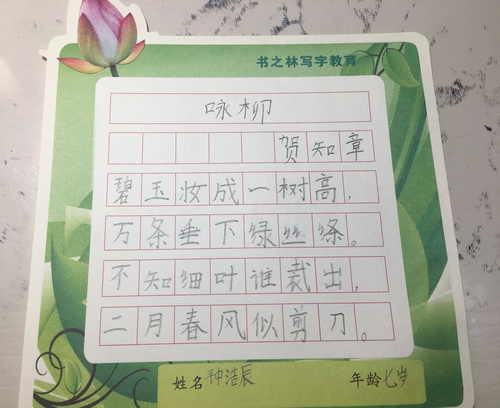 书之林写字教育
咏柳
贺知章
碧玉妆成一树高，
万条垂下绿丝绦。
不知细叶谁裁出，
二月春风似剪刀。
姓名钟浩辰 年龄七岁